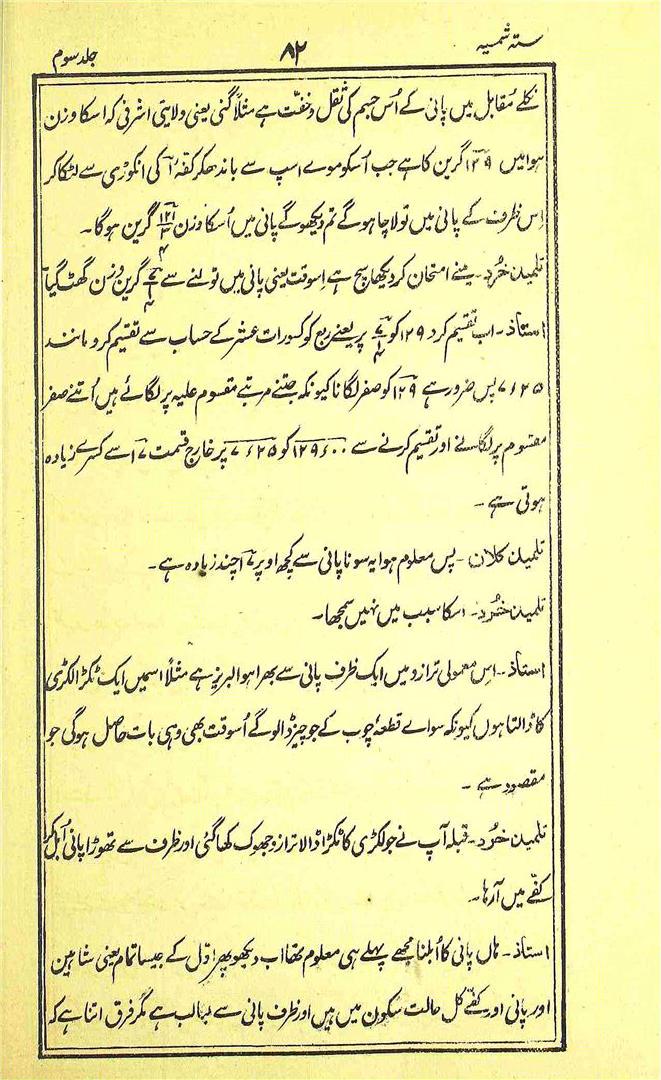 ستہ شمسیہ ۸۲ جلد سوم
نکلے مُقابل میں پانی کے اُس جسم کی ثقل و خفّت ہے مثلاً گنی یعنی ولایتی اشرفی کہ اسکا وزن
ہوا میں ۱۲۹ گرین کا ہے جب اُسکو موے اسپ سے باندھکر کفۂ آ کی انکوڑی سے لٹکا کر
اِس ظرف کے پانی میں تولا چاہو گے تم دیکھو گے پانی میں اُسکا وزن ۱۲۱ ۳/۴ گرین ہوگا ۔
تلمیذ خُرد ۔ مینے امتحان کر دیکھا سچ ہے اِسوقت یعنی پانی میں تولنے سے ۷ ۱/۴ گرین وزن گھٹ گیا
استاذ ۔ اب تقسیم کرو ۱۲۹ کو ۷ ۱/۴ پر یعنے ربع کو کسورات عشر کے حساب سے تقسیم کرو مانند
۷٫۲۵ پس ضرور ہے ۱۲۹ کو صفر لگانا کیونکہ جتنے مرتبے مقسوم علیہ پر لگائے ہیں اُتنے صفر
مقسوم پر لگانے اور تقسیم کرنے سے ۱۲۹٫۰۰ کو ۷٫۲۵ پر خارج قسمت ۱۷ سے کسرے زیادہ
ہوتی ہے ۔
تلمیذ کلان ۔ پس معلوم ہوا یہ سونا پانی سے کچھ اوپر ۱۷ چند زیادہ ہے ۔
تلمیذ خُرد ۔ اسکا سبب میں نہیں سمجھا ۔
استاذ ۔ اس معمولی ترازو میں ایک ظرف پانی سے بھرا ہوا لبریز ہے مثلاً اسمیں ایک ٹکڑا لکڑی
کا ڈالتا ہوں کیونکہ سواے قطعۂ چوب کے جو چیز ڈالو گے اُسوقت بھی وہی بات حاصل ہوگی جو
مقصود ہے ۔
تلمیذ خُرد ۔ قبلہ آپ نے جو لکڑی کا ٹکڑا ڈالا ترازو جھوک کھا گئی اور ظرف سے تھوڑا پانی اُبل کر
کفّے میں آرہا ۔
استاذ ۔ ہاں پانی کا اُبلنا مجھے پہلے ہی معلوم تھا اب دیکھو پھر اوّل کے جیسا تمام یعنی شاہین
اور پانی اور کفّے کل حالت سکون میں ہیں اور ظرف پانی سے لبالب ہے مگر فرق اتنا ہے کہ